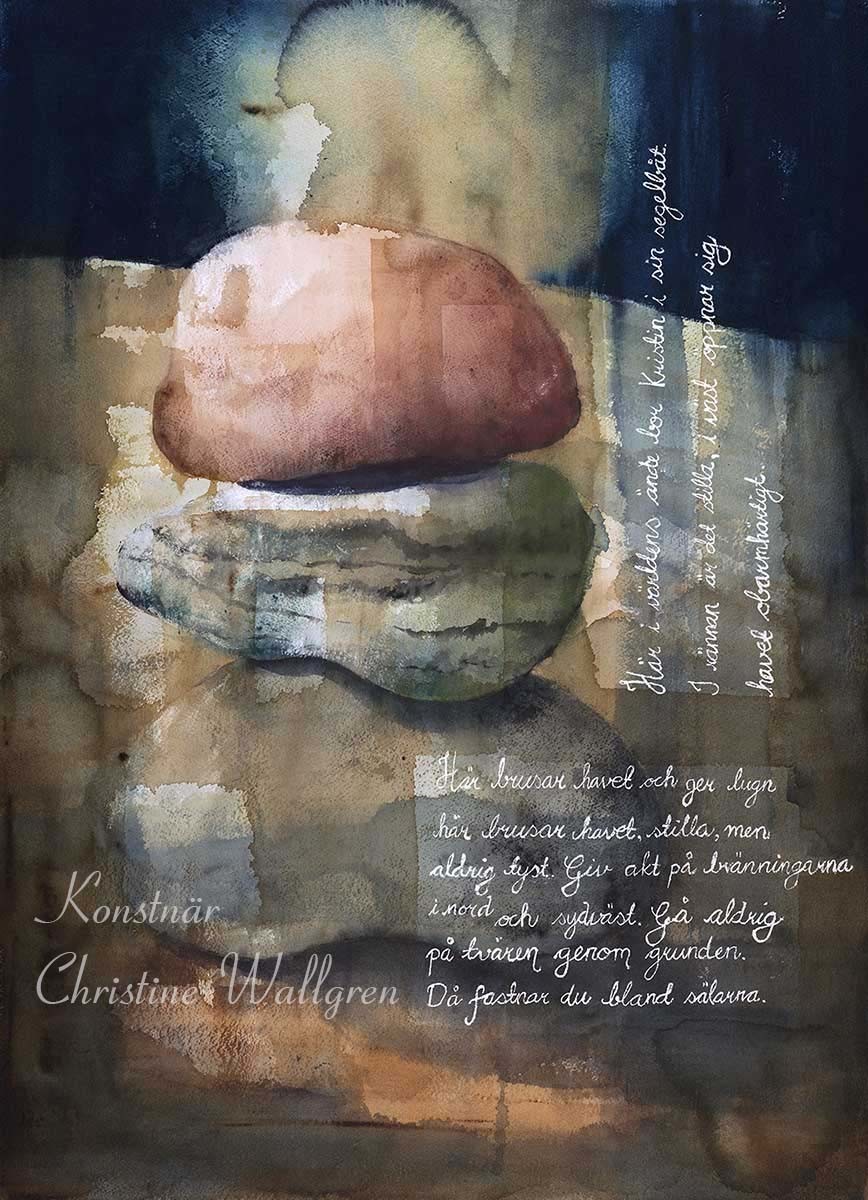 Här i världens ände bor Kristin i sin segelbåt.
I rännan är det stilla, i väst öppnar sig
havet obarmhärtigt.
Här brusar havet och ger lugn
här brusar havet, stilla, men
aldrig tyst. Giv akt på bränningarna
i nord och sydväst. Gå aldrig
på tvären genom grunden.
Då fastnar du bland sälarna.
Konstnär
Christine Wallgren